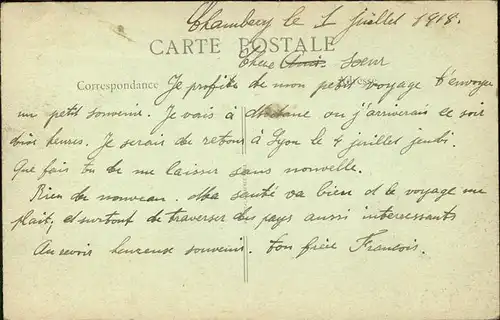 Chambery le 1 juillet 1918.
CARTE POSTALE
Chere Amis Soeur
Correspondance Adresse
Je profite de mon petit voyage t'envoyer
un petit souvenir. Je vais à Modane ou j'arriverais ce soir
dix heures. Je serais de retour à Lyon le 4 juillet jeudi.
Que fais tu de me laisser sans nouvelle.
Rien de nouveau. Ma santé va bien et le voyage me
plait, et surtout de traverser des pays aussi interessants
Au revoir heureux souvenir. ton frère Francois.